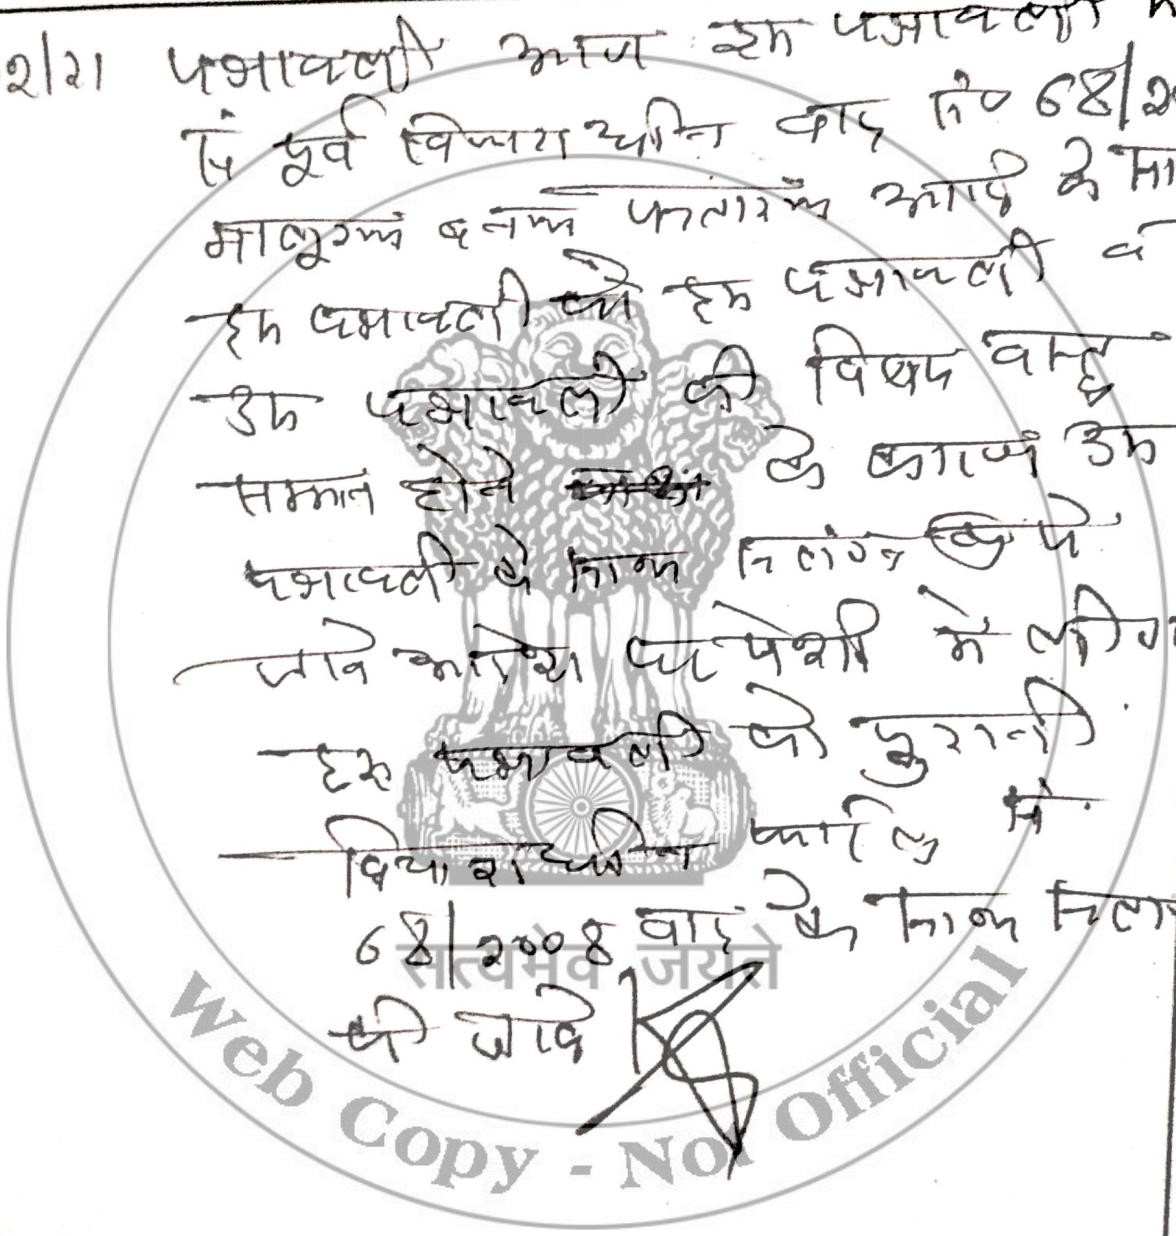 2/21 पत्रावली आज इस पत्रावली
में पूर्व विचाराधीन वाद सं० 68/2
बनाम आदि के
इस पत्रावली को इस पत्रावली व
उस पत्रावली की विषय वस्तु
समान होने के कारण उस
पत्रावली के साथ संलग्न किये
जावे आदेश पर पेशी में ली
इस पत्रावली को पुरानी
विचाराधीन फाईल में
68/2008 वाद के साथ
की जावे
सत्यमेव जयते
Web Copy - Not Official